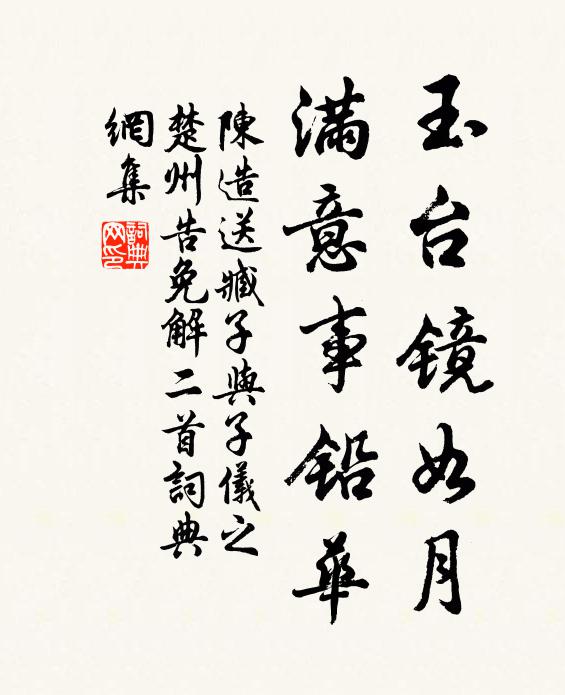 玉台镜如月
满意事铅华
陳造送臧子與子儀之
楚州告免解二首詞典
網集
詞典网印